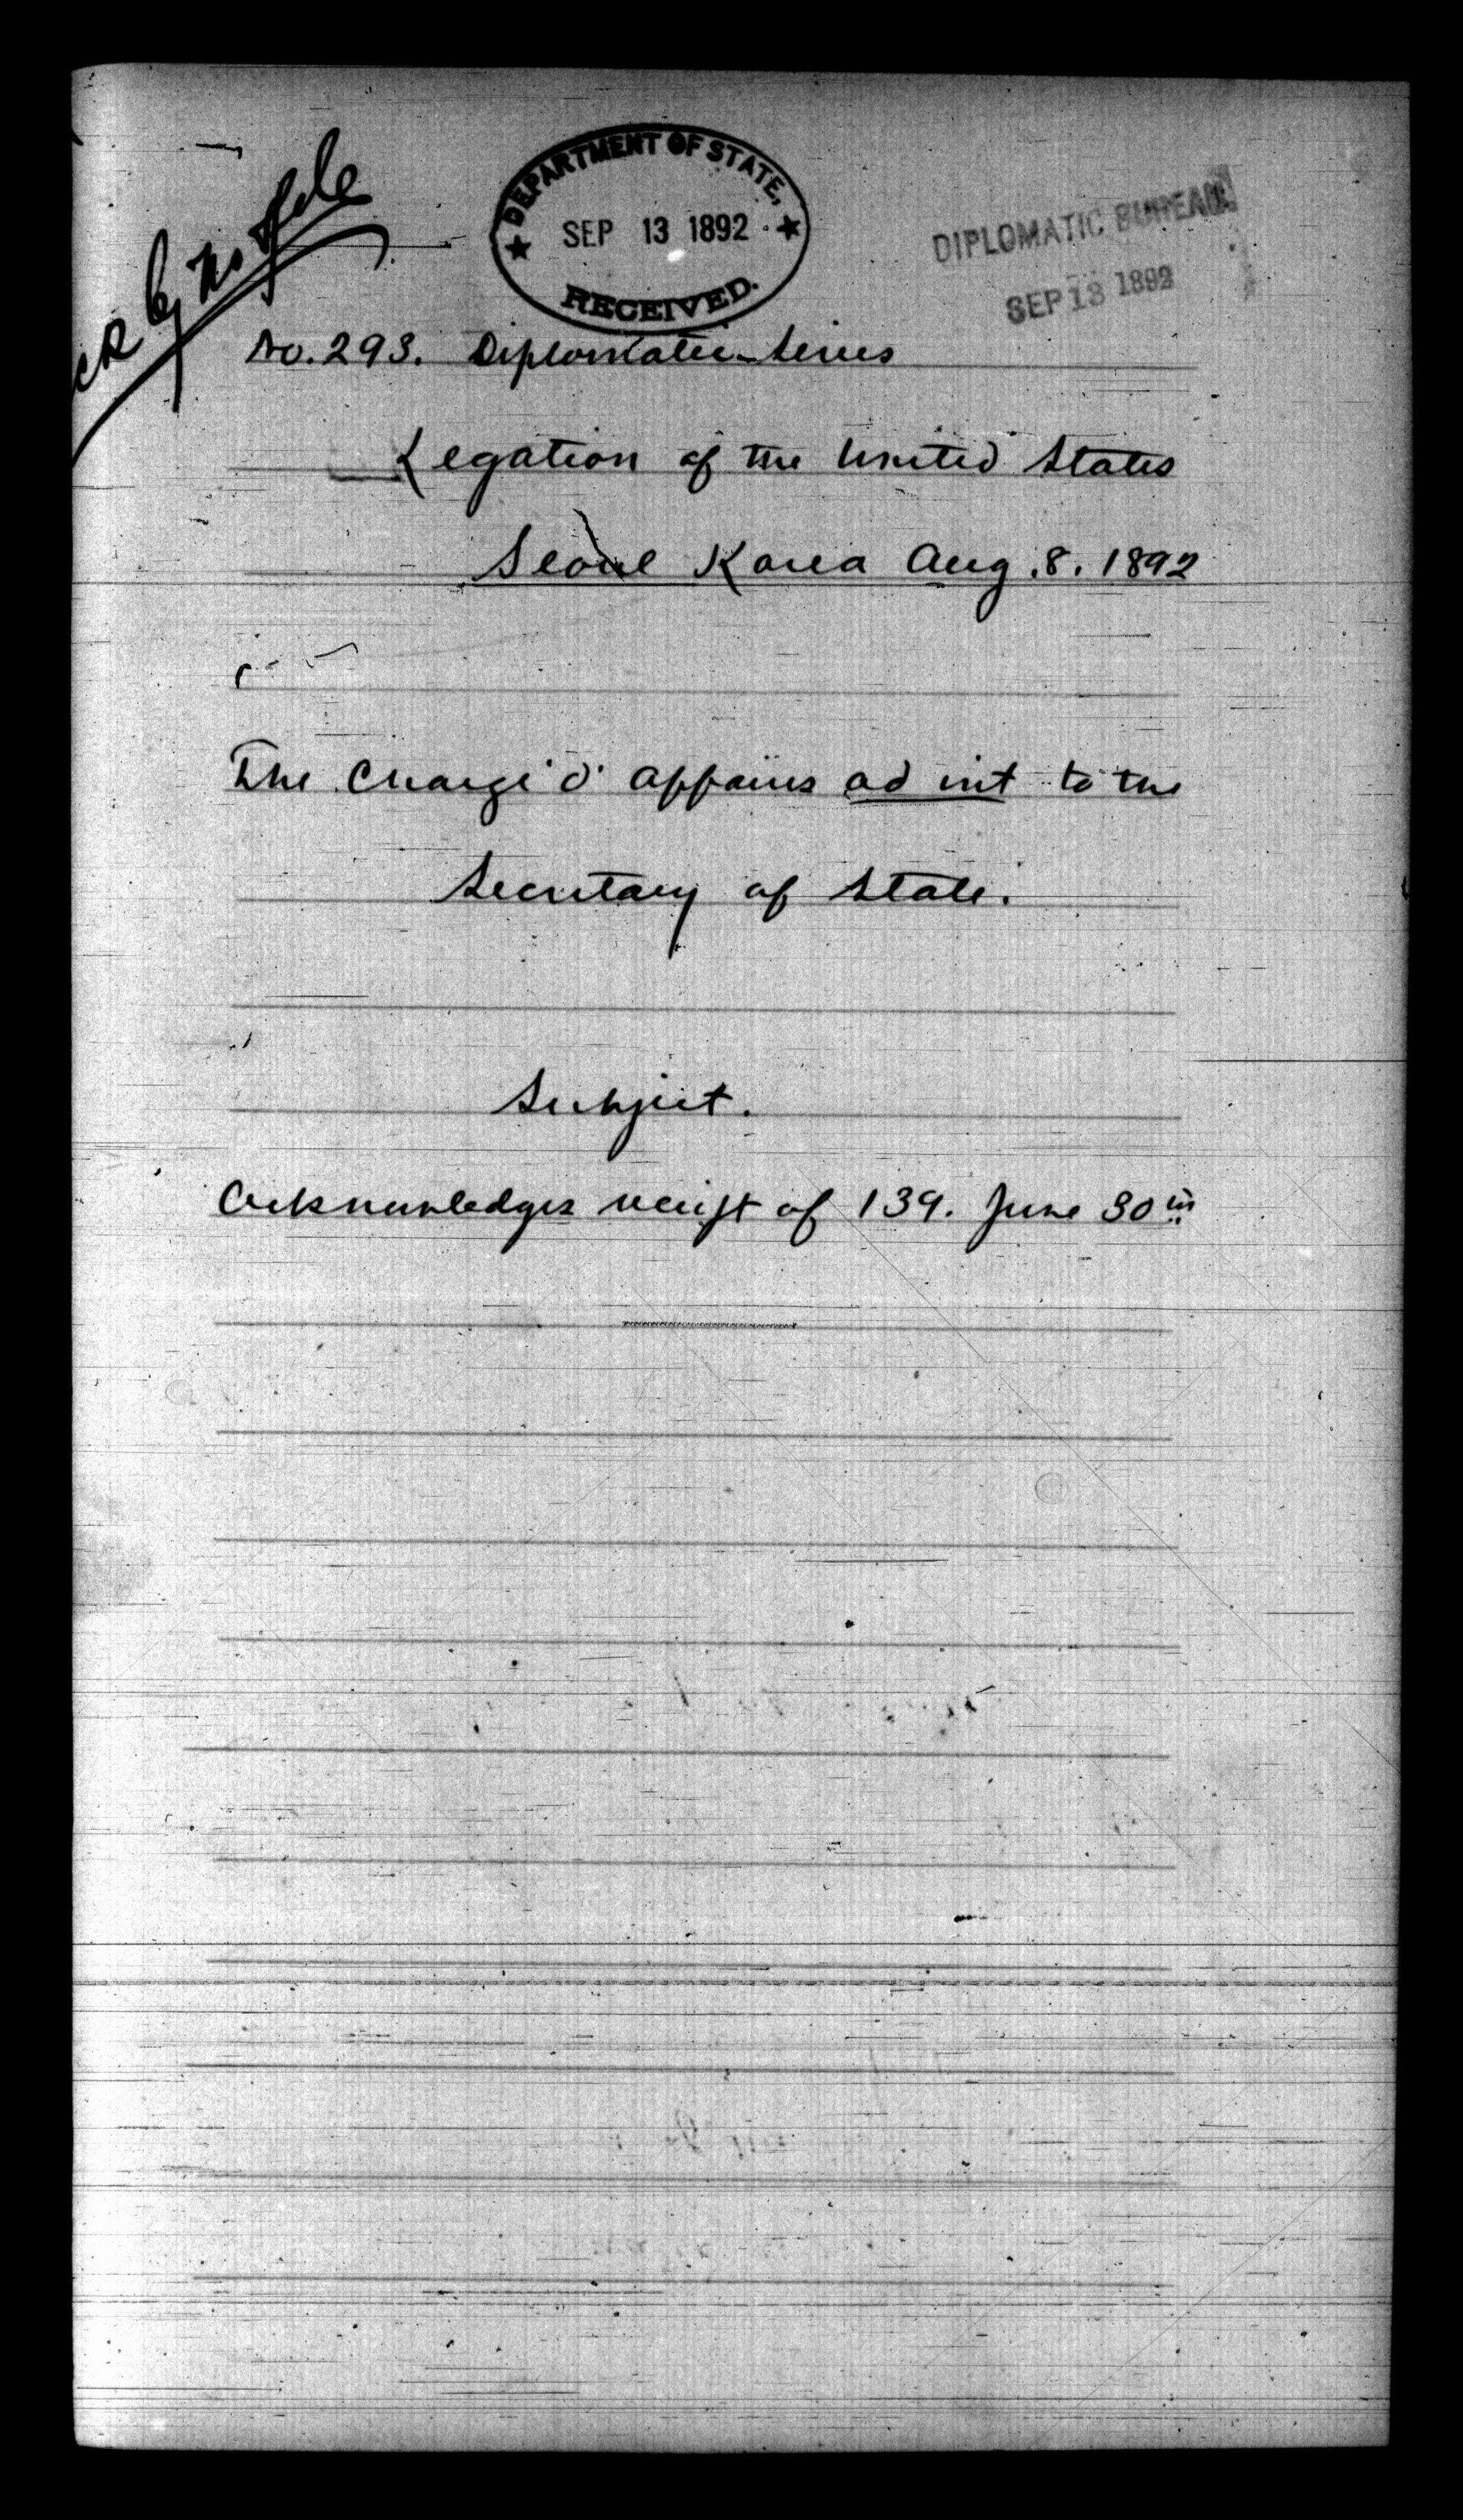 DEPARTMENT OF STATE,
SEP 13 1892
RECEIVED.
DIPLOMATIC BUREAU
SEP 13 1892
No. 293. Diplomatic Series
Legation of the United States
Seoul Korea Aug. 8. 1892
The Chargé d' Affairs ad int to the
Secretary of State.
Subject.
Acknowledges receipt of 139. June 30th